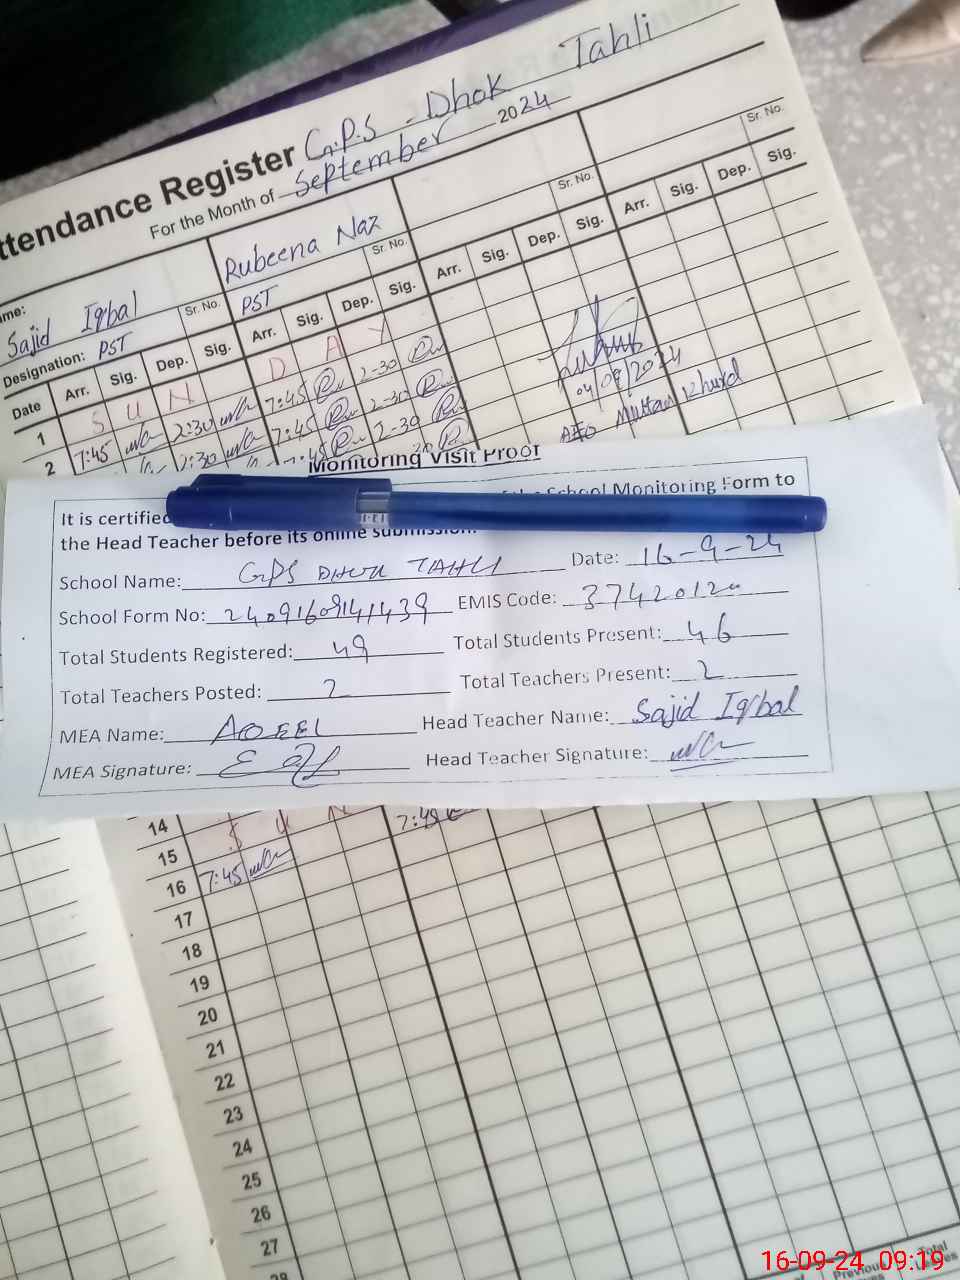 ttendance Register G.P.S - Dhok Tahli
For the Month of September 2024
ame: Sajid Iqbal Sr. No.
Rubeena Naz Sr. No.
Sr. No.
Sr. No.
Designation: PST
PST
Date Arr. Sig. Dep. Sig. Arr. Sig. Dep. Sig. Arr. Sig. Dep. Sig. Arr. Sig. Dep. Sig.
1 S U N D A Y
2 7:45 2:30 7:45 2-30
2:30 7:45 2-30
2-30
04/09/2024
AEO Khurd
Monitoring Visit Proof
It is certified School Monitoring Form to
the Head Teacher before its online submission.
School Name: GPS DHOK TAHLI Date: 16-9-24
School Form No: 24091609141439 EMIS Code: 37420120
Total Students Registered: 49 Total Students Present: 46
Total Teachers Posted: 2 Total Teachers Present: 2
MEA Name: AQEEL Head Teacher Name: Sajid Iqbal
MEA Signature: Head Teacher Signature:
14
15 S U N
16 7:45
17
18
19
20
21
22
23
24
25
26
27
28
Previous Total
16-09-24 09:19